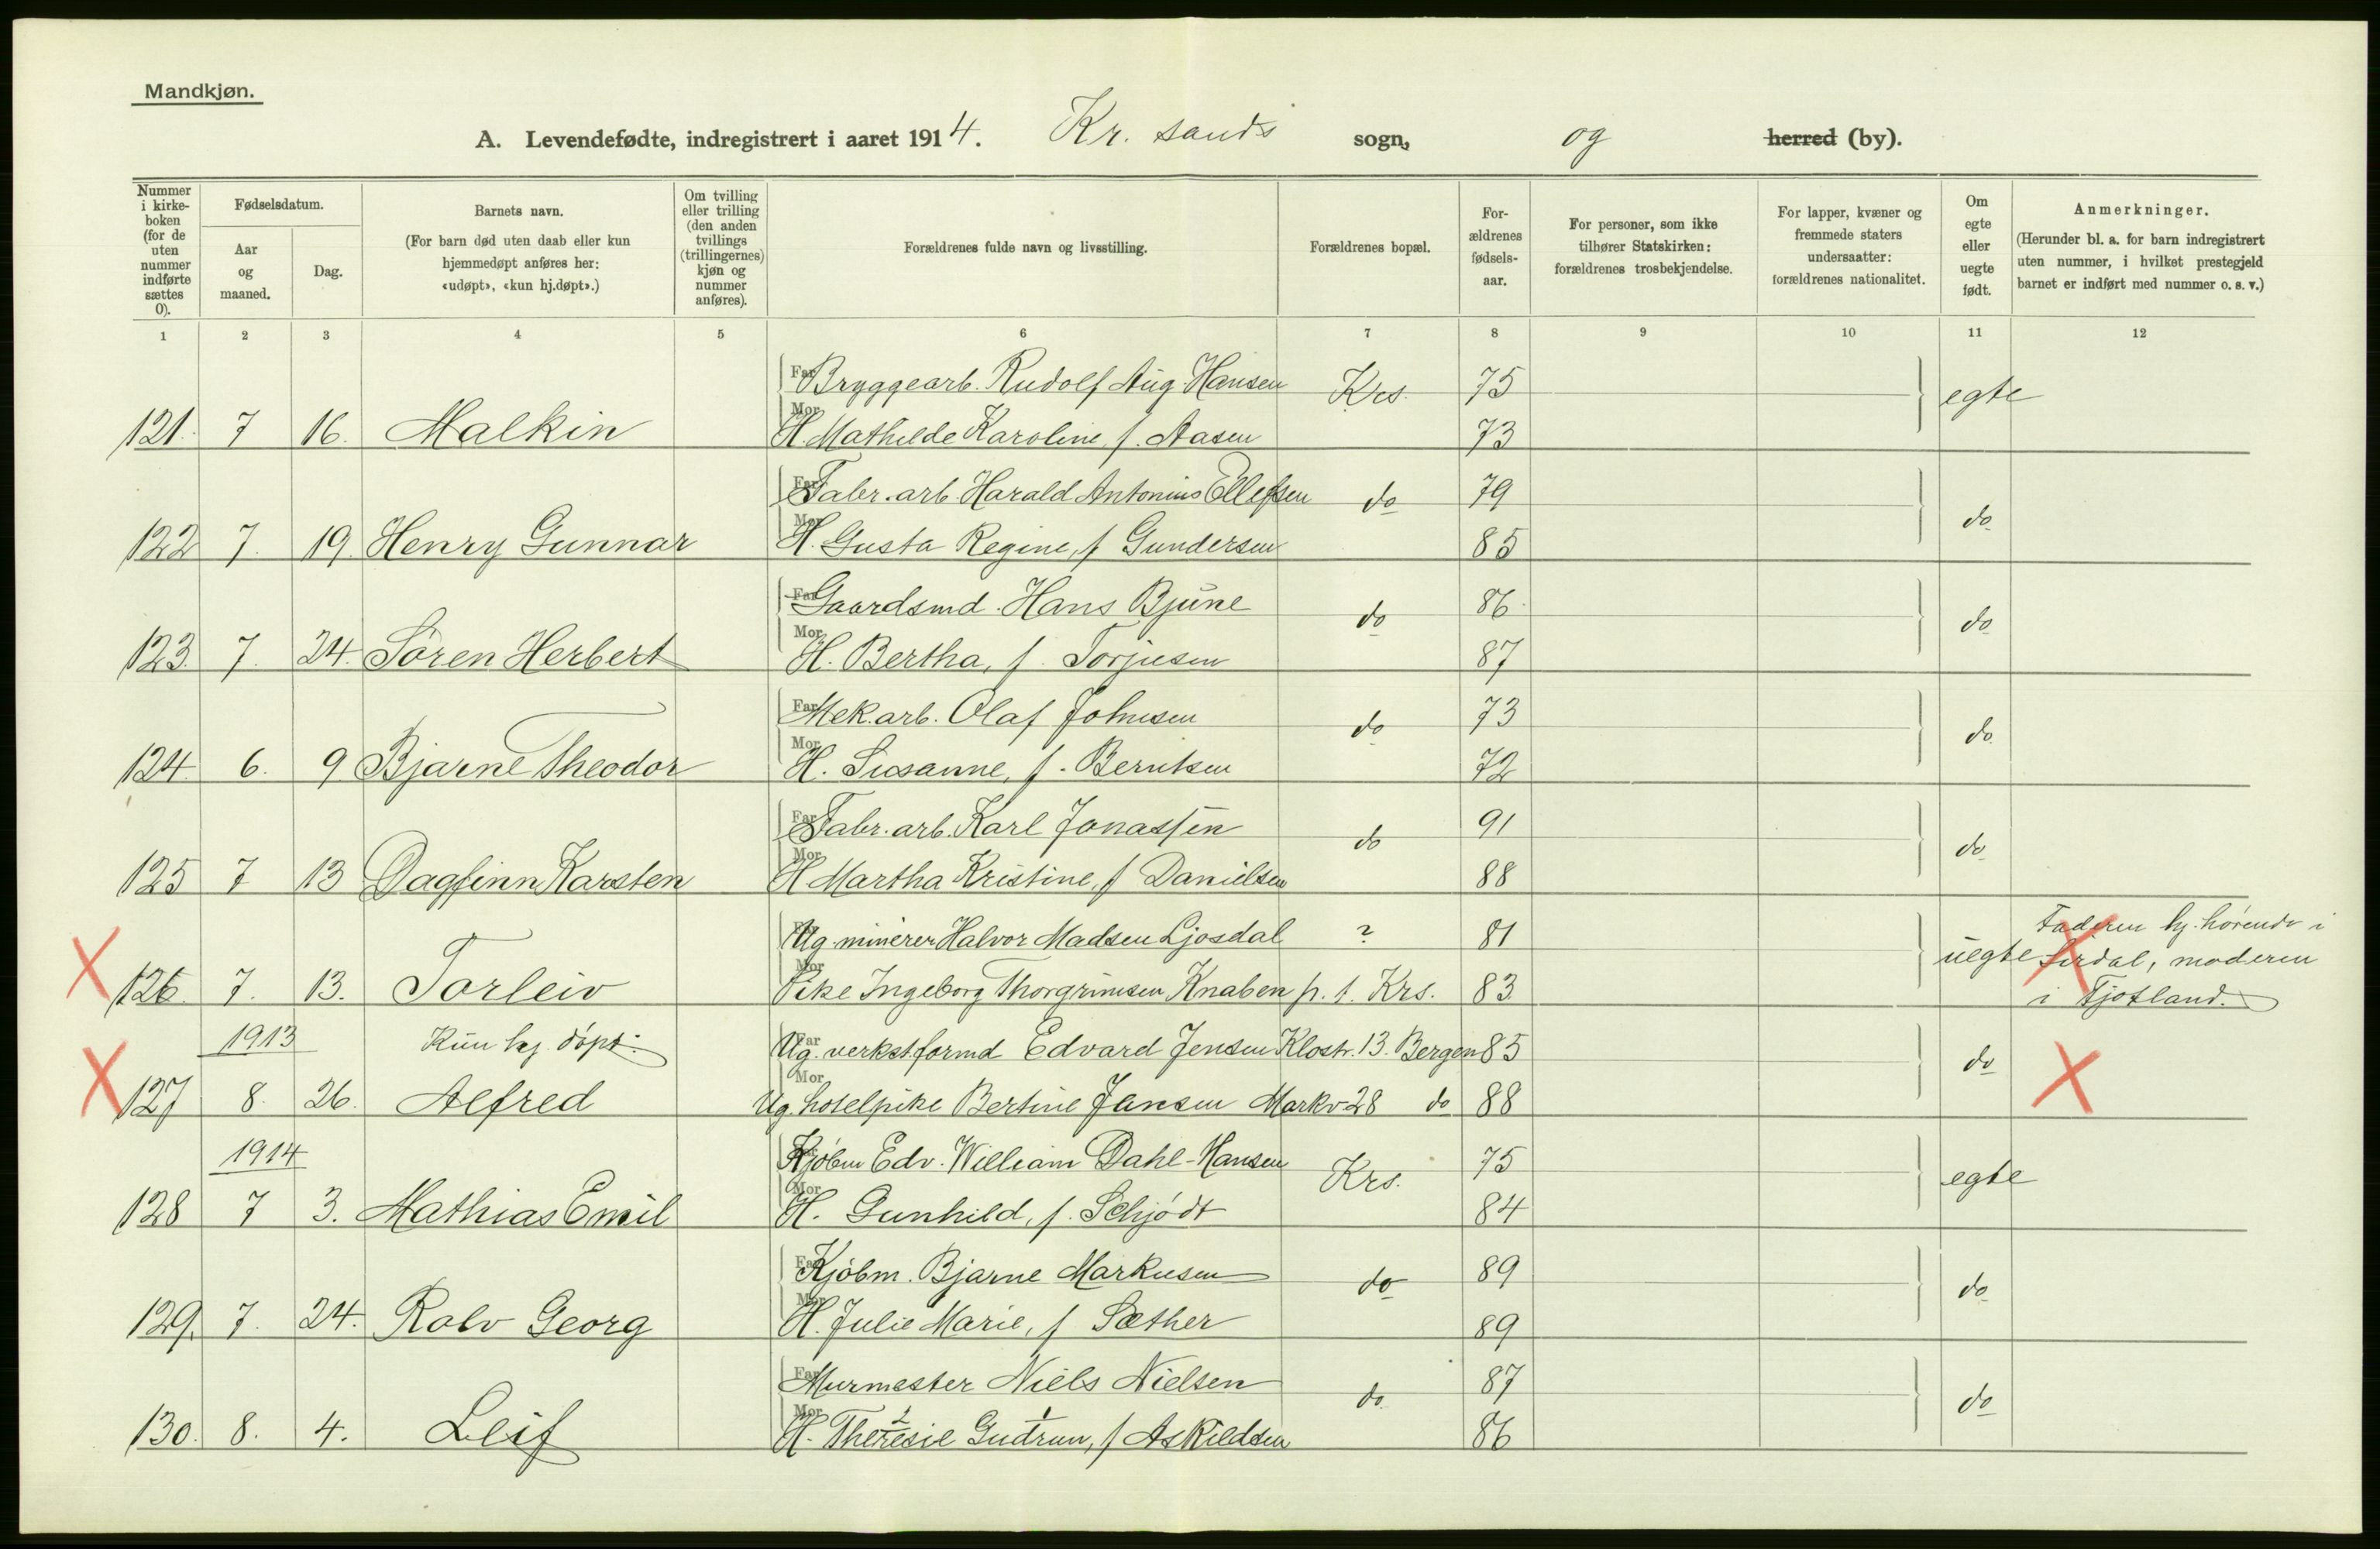 Mandkjøn.
A. Levendefødte, indregistrert i aaret 1914. Kr. sands sogn, og herred (by).
Nummer i kirke-boken (for de uten nummer indførte sættes 0).
Fødselsdatum.
Aar og maaned.
Dag.
Barnets navn.
(For barn død uten daab eller kun hjemmedøpt anføres her: «udøpt», «kun hj.døpt».)
Om tvilling eller trilling (den anden tvillings (trillingernes) kjøn og nummer anføres).
Forældrenes fulde navn og livsstilling.
Forældrenes bopæl.
For-ældrenes fødsels-aar.
For personer, som ikke tilhører Statskirken: forældrenes trosbekjendelse.
For lapper, kvæner og fremmede staters undersaatter: forældrenes nationalitet.
Om egte eller uegte født.
Anmerkninger.
(Herunder bl. a. for barn indregistrert uten nummer, i hvilket prestegjeld barnet er indført med nummer o. s. v.)
1 2 3 4 5 6 7 8 9 10 11 12
Far Bryggearb. Rudolf Aug. Hansen Krs. 75 egte
121. 7 16. Malkin Mor H. Mathilde Karoline, f. Aasen 73
Far Fabr.arb. Harald Antonius Ellefsen do 79 do
122 7. 19. Henry Gunnar Mor H. Gusta Regine, f Gundersen 85
Far Gaardsmd. Hans Bjune do 86 do
123. 7. 24. Sören Herbert Mor H. Bertha, f. Torjusen 87
Far Mek.arb. Olaf Johnsen do 73 do
124. 6. 9 Bjarne Theodor Mor H. Susanne, f. Berntsen 72
Far Fabr.arb. Karl Jonassen do 91 do
125 7 13 Dagfinn Karsten Mor H Martha Kristine, f Danielsen 88
Far Ug. minerer Halvor Madsen Ljosdal ? 81 uegte Faderen hj. hørende i Sirdal, moderen i Fjotland.
126. 7. 13. Torleiv Mor Pike Ingeborg Thorgrimsen Knaben p. t. Krs. 83
1913 Kun hj. döpt. Far Ug. verkst.formd Edvard Jensen Klostr. 13. Bergen 85 do
127 8. 26. Alfred Mor Ug. hotelpike Bertine Jansen Markv 28 do 88
1914 Far Kjöbm Edv. William Dahl-Hansen Krs. 75 egte
128 7 3. Mathias Emil Mor H. Gunhild, f. Schjödt 84
Far Kjöbm. Bjarne Markusen do 89 do
129. 7. 24. Rolv Georg Mor H. Julie Marie, f Sæther 89
Far Murmester Niels Nielsen do 87 do
130. 8. 4. Leif Mor H. Theresie 2 Gudrun 1, f Askildsen 86